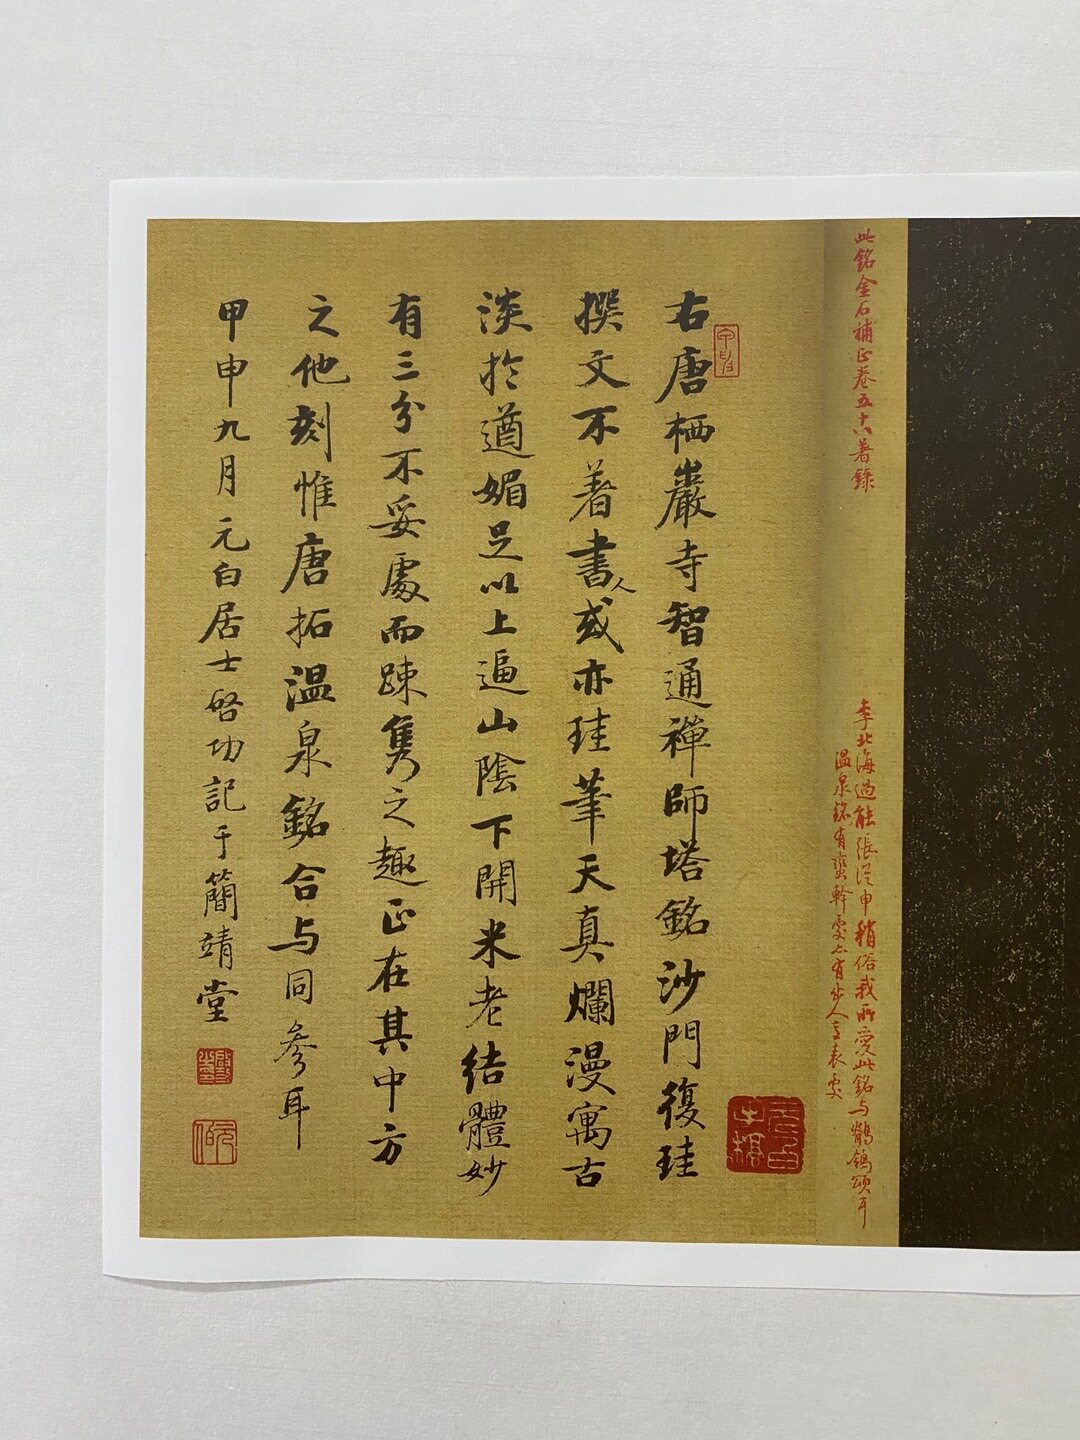 此銘金石補正卷五十六著錄
李北海過能張從申稍俗我所愛此銘与鶺鴒頌耳
温泉銘有蛮幹處亦有步人ま表處
右唐栖巖寺智通禪師塔銘沙門復珪
撰文不著書人或亦珪筆天真爛漫寓古
淡於遒媚足以上逼山陰下開米老結體妙
有三分不妥處而踈雋之趣正在其中方
之他刻惟唐拓温泉銘合与同參耳
甲申九月元白居士啓功記于簡靖堂